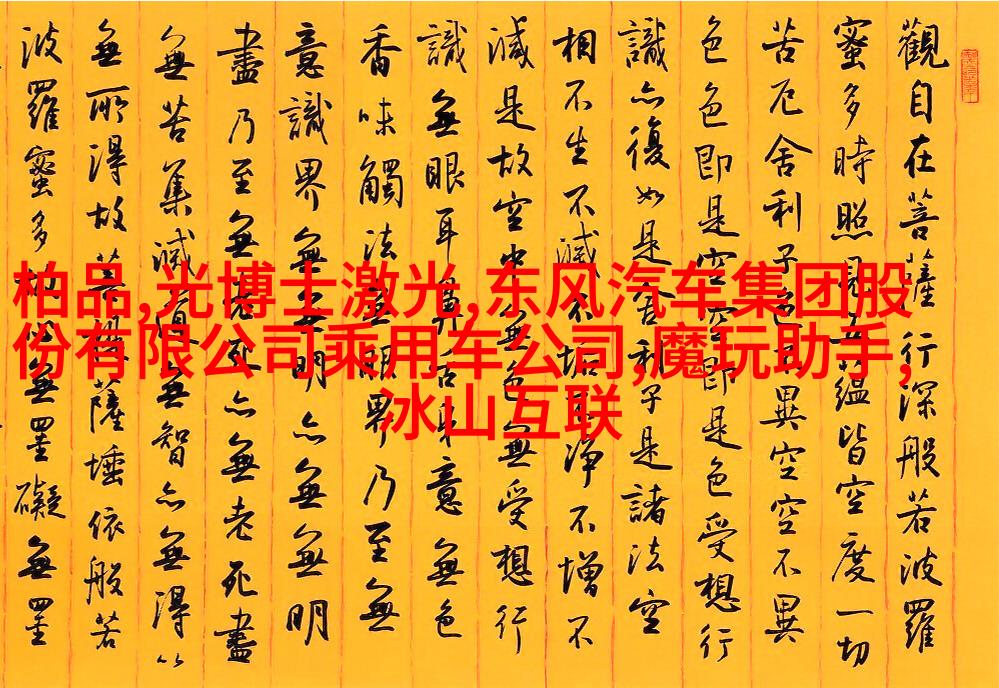 觀自在菩薩行深般若波羅
蜜多時照見五蘊皆空度一切
苦厄舍利子色不異空空不異
色色即是空空即是色受想行
識亦復如是舍利子是諸法空
相不生不滅不垢不淨不增不
減是故空中無色無受想行
識無眼耳鼻舌身意無色
香味觸法無眼界乃至無
意識界無無明亦無無明
盡乃至無老死亦無老死盡
無苦集滅道無智亦無得以
無所得故菩提薩埵依般若
波羅蜜多故心無罣礙無罣
柏品,光博士激光,东风汽车集团股
份有限公司乘用车公司,魔玩助手,
冰山互联